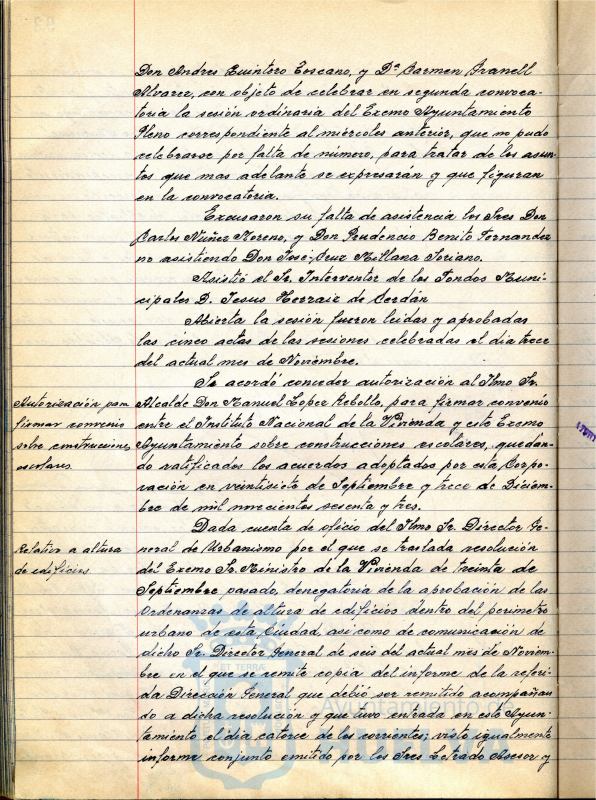 Don Andres Quintero Toscano, y Dª Carmen Granell
Alvarez, con objeto de celebrar en segunda convoca-
toria la sesión ordinaria del Excmo Ayuntamiento
Pleno correspondiente al miércoles anterior, que no pudo
celebrarse por falta de número, para tratar de los asun-
tos que mas adelante se expresarán y que figuran
en la convocatoria.
Excusaron su falta de asistencia los Sres Don
Carlos Nuñez Moreno, y Don Prudencio Benito Fernandez
no asistiendo Don José-Cruz Millana Soriano.
Asistió el Sr. Interventor de los Fondos Muni-
cipales D. Jesus Herraiz de Cerdán
Abierta la sesión fueron leidas y aprobadas
las cinco actas de las sesiones celebradas el dia trece
del actual mes de Noviembre.
Autorización para
firmar convenio
sobre construcciones
escolares
Se acordó conceder autorización al Ilmo Sr.
Alcalde Don Manuel Lopez Rebollo, para firmar convenio
entre el Instituto Nacional de la Vivienda y este Excmo
Ayuntamiento sobre construcciones escolares, quedan-
do ratificados los acuerdos adoptados por esta Corpo-
ración en veintisiete de Septiembre y trece de Diciem-
bre de mil novecientos sesenta y tres.
Relativo a altura
de edificios
Dada cuenta de oficio del Ilmo Sr. Director Ge-
neral de Urbanismo por el que se traslada resolución
del Excmo Sr. Ministro de la Vivienda de treinta de
Septiembre pasado, denegatoria de la aprobación de las
Ordenanzas de altura de edificios dentro del perimetro
urbano de esta Ciudad, asi como de comunicación de
dicho Sr. Director General de seis del actual mes de Noviem-
bre en el que se remite copia del informe de la referi-
da Dirección General que debió ser remitido acompañan-
do a dicha resolución y que tuvo entrada en este Ayun-
tamiento el dia catorce de los corrientes; visto igualmente
informe conjunto emitido por los Sres Letrado Asesor y
ET TERRÆ
Ayuntamiento de